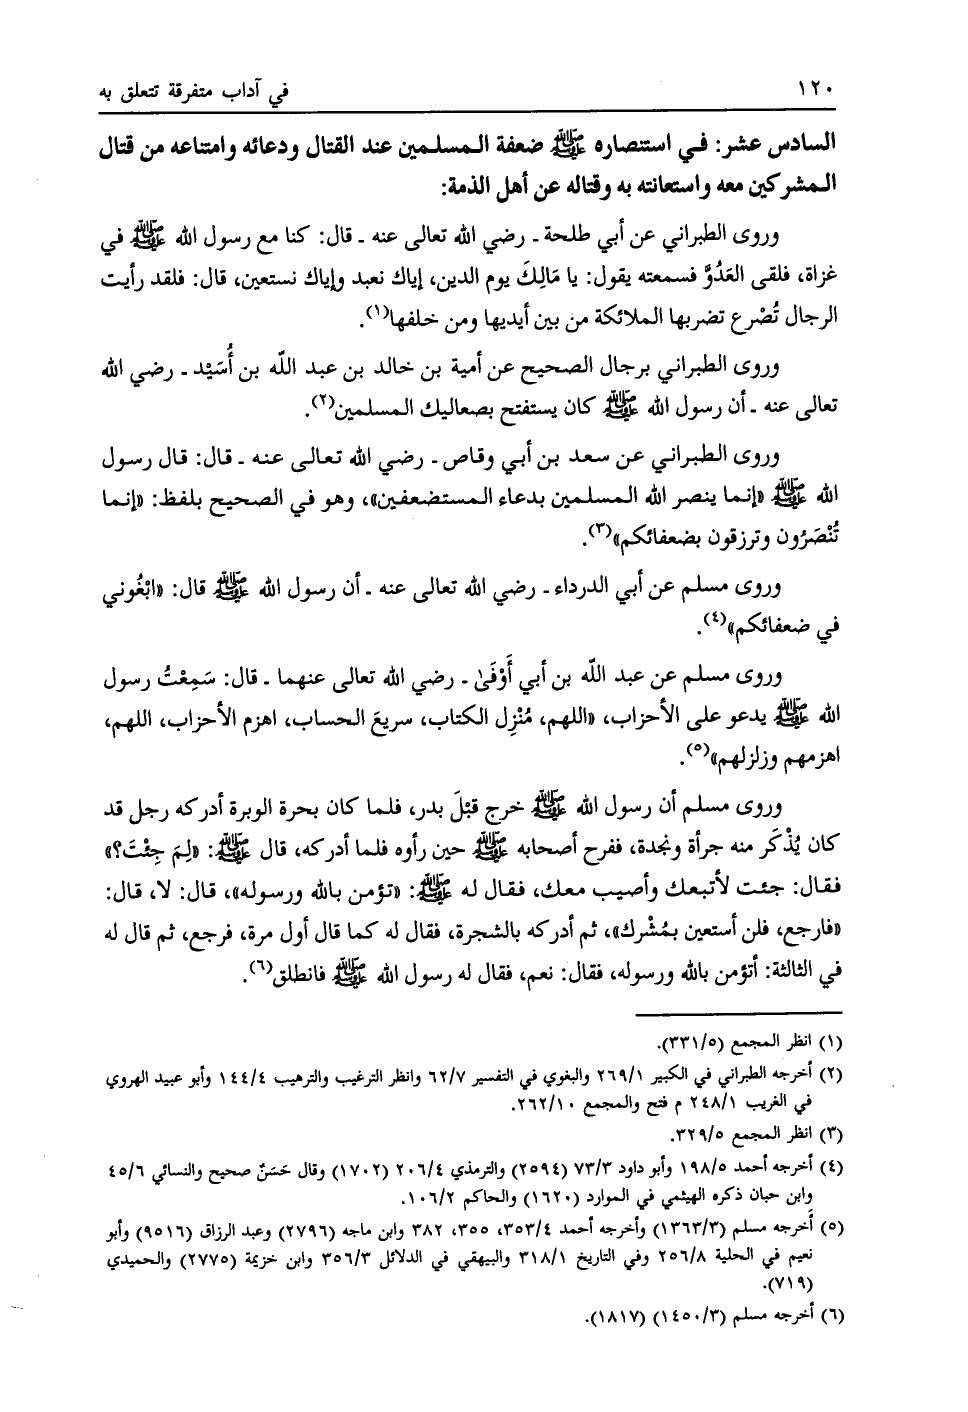 ١٢٠ في آداب متفرقة تتعلق به
السادس عشر: في استنصاره ﷺ ضعفة المسلمين عند القتال ودعائه وامتناعه من قتال
المشركين معه واستعانته به وقتاله عن أهل الذمة:
وروى الطبراني عن أبي طلحة ـ رضي الله تعالى عنه ـ قال: كنا مع رسول الله ﷺ في
غزاة، فلقى العَدُوَّ فسمعته يقول: يا مَالِكَ يوم الدين، إياك نعبد وإياك نستعين، قال: فلقد رأيت
الرجال تُصْرع تضربها الملائكة من بين أيديها ومن خلفها(١).
وروى الطبراني برجال الصحيح عن أمية بن خالد بن عبد اللّه بن أُسَيْد ـ رضي الله
تعالى عنه ـ أن رسول الله ﷺ كان يستفتح بصعاليك المسلمين(٢).
وروى الطبراني عن سعد بن أبي وقاص ـ رضي الله تعالى عنه ـ قال: قال رسول
الله ﷺ «إنما ينصر الله المسلمين بدعاء المستضعفين»، وهو في الصحيح بلفظ: «إنما
تُنْصَرُون وترزقون بضعفائكم»(٣).
وروى مسلم عن أبي الدرداء ـ رضي الله تعالى عنه ـ أن رسول الله ﷺ قال: «ابْغُوني
في ضعفائكم»(٤).
وروى مسلم عن عبد اللّه بن أبي أَوْفَىٰ ـ رضي الله تعالى عنهما ـ قال: سَمِعْتُ رسول
الله ﷺ يدعو على الأحزاب، «اللهم، مُنْزِل الكتاب، سريعَ الحساب، اهزم الأحزاب، اللهم،
اهزمهم وزلزلهم»(٥).
وروى مسلم أن رسول الله ﷺ خرج قبْلَ بدر، فلما كان بحرة الوبرة أدركه رجل قد
كان يُذْكَر منه جرأة ونجدة، ففرح أصحابه ﷺ حين رأوه فلما أدركه، قال ﷺ: «لِمَ جِئْتَ؟»
فقال: جئت لأتبعك وأصيب معك، فقال له ﷺ: «تؤمن بالله ورسوله»، قال: لا، قال:
«فارجع، فلن أستعين بمُشْرك»، ثم أدركه بالشجرة، فقال له كما قال أول مرة، فرجع، ثم قال له
في الثالثة: أتؤمن بالله ورسوله، فقال: نعم، فقال له رسول الله ﷺ فانطلق(٦).
(١) انظر المجمع (٣٣١/٥).
(٢) أخرجه الطبراني في الكبير ٢٦٩/١ والبغوي في التفسير ٦٢/٧ وانظر الترغيب والترهيب ١٤٤/٤ وأبو عبيد الهروي
في الغريب ٢٤٨/١ م فتح والمجمع ٢٦٢/١٠.
(٣) انظر المجمع ٣٢٩/٥.
(٤) أخرجه أحمد ١٩٨/٥ وأبو داود ٧٣/٣ (٢٥٩٤) والترمذي ٢٠٦/٤ (١٧٠٢) وقال حَسَنٌ صحيح والنسائي ٤٥/٦
وابن حبان ذكره الهيثمي في الموارد (١٦٢٠) والحاكم ١٠٦/٢.
(٥) أخرجه مسلم (١٣٦٣/٣) وأخرجه أحمد ٣٥٣/٤، ٣٥٥، ٣٨٢ وابن ماجه (٢٧٩٦) وعبد الرزاق (٩٥١٦) وأبو
نعيم في الحلية ٢٥٦/٨ وفي التاريخ ٣١٨/١ والبيهقي في الدلائل ٣٥٦/٣ وابن خزيمة (٢٧٧٥) والحميدي
(٧١٩).
(٦) أخرجه مسلم (١٤٥٠/٣) (١٨١٧).